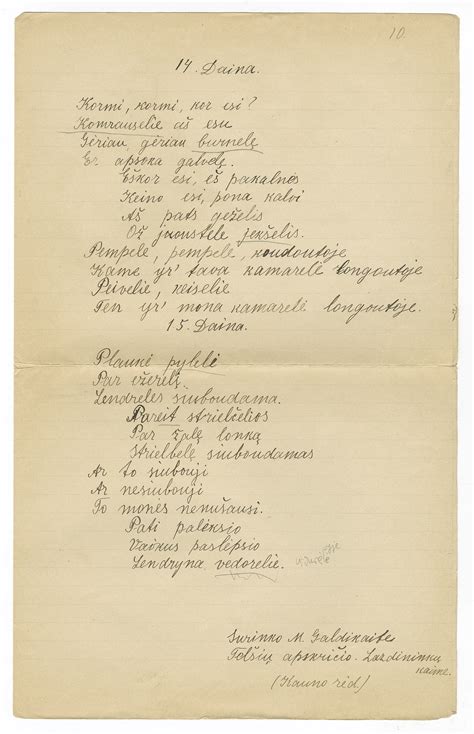 10.
14. Daina.
Kormi, kormi, kor esi?
Komrauselie aš esu
Gėriau, gėriau burnelę
Er apsoka galvelę.
Eškor esi, eš pakalnos
Keino esi, pona kalvi
Aš pats geželis
Ož jaunstele jekšelis.
Pempele, pempele, koudoutoje
Kame yr' tava kamarelė longoutoje
Peivelie, keiselie
Ten yr' mona kamarelė longoutoje.
15. Daina.
Plaukė pylelė
Par ežerelį
Lendreles siuboudama.
Pareit strielčelios
Par žalę lonką
Strielbelę siuboudamas
Ar to siubouji
Ar nesiubouji
To monės nenušausi.
Pati palėksio
Vaikus paslepsio
Lendryna vedorelie.
Surinko M. Galdikaitė
Telšių apskričio. Lazdininkų
kaime.
(Kauno rėd)